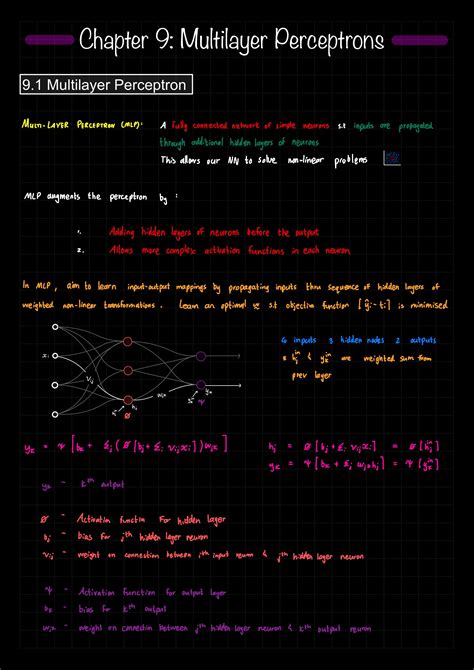 Chapter 9: Multilayer Perceptrons
9.1 Multilayer Perceptron
MULTI-LAYER PERCEPTRON (MLP): A fully connected network of simple neurons s.t inputs are propagated
through additional hidden layers of neurons
This allows our NN to solve non-linear problems
MLP augments the perceptron by :
1. Adding hidden layers of neurons before the output
2. Allows more complex activation functions in each neuron
In MLP, aim to learn input-output mappings by propagating inputs thru sequence of hidden layers of
weighted non-linear transformations. Learn an optimal w s.t objective function [ŷi - ti] is minimised
4 inputs 3 hidden nodes 2 outputs
hjⁱⁿ & ykⁱⁿ are weighted sum from
prev layer
xi
vij
hj
ø
wjk
yk
ψ
yk = ψ [bk + Σj (ø[bj + Σi vij xi]) wjk]
hj = ø[bj + Σi vij xi] = ø[hjⁱⁿ]
yk = ψ[bk + Σj wjk hj] = ψ[ykⁱⁿ]
yk - kᵗʰ output
ø - Activation function for hidden layer
bj - bias for jᵗʰ hidden layer neuron
vij - weight on connection between iᵗʰ input neuron & jᵗʰ hidden layer neuron
ψ - Activation function for output layer
bk - bias for kᵗʰ output
wjk - weight on connection between jᵗʰ hidden layer neuron & kᵗʰ output neuron